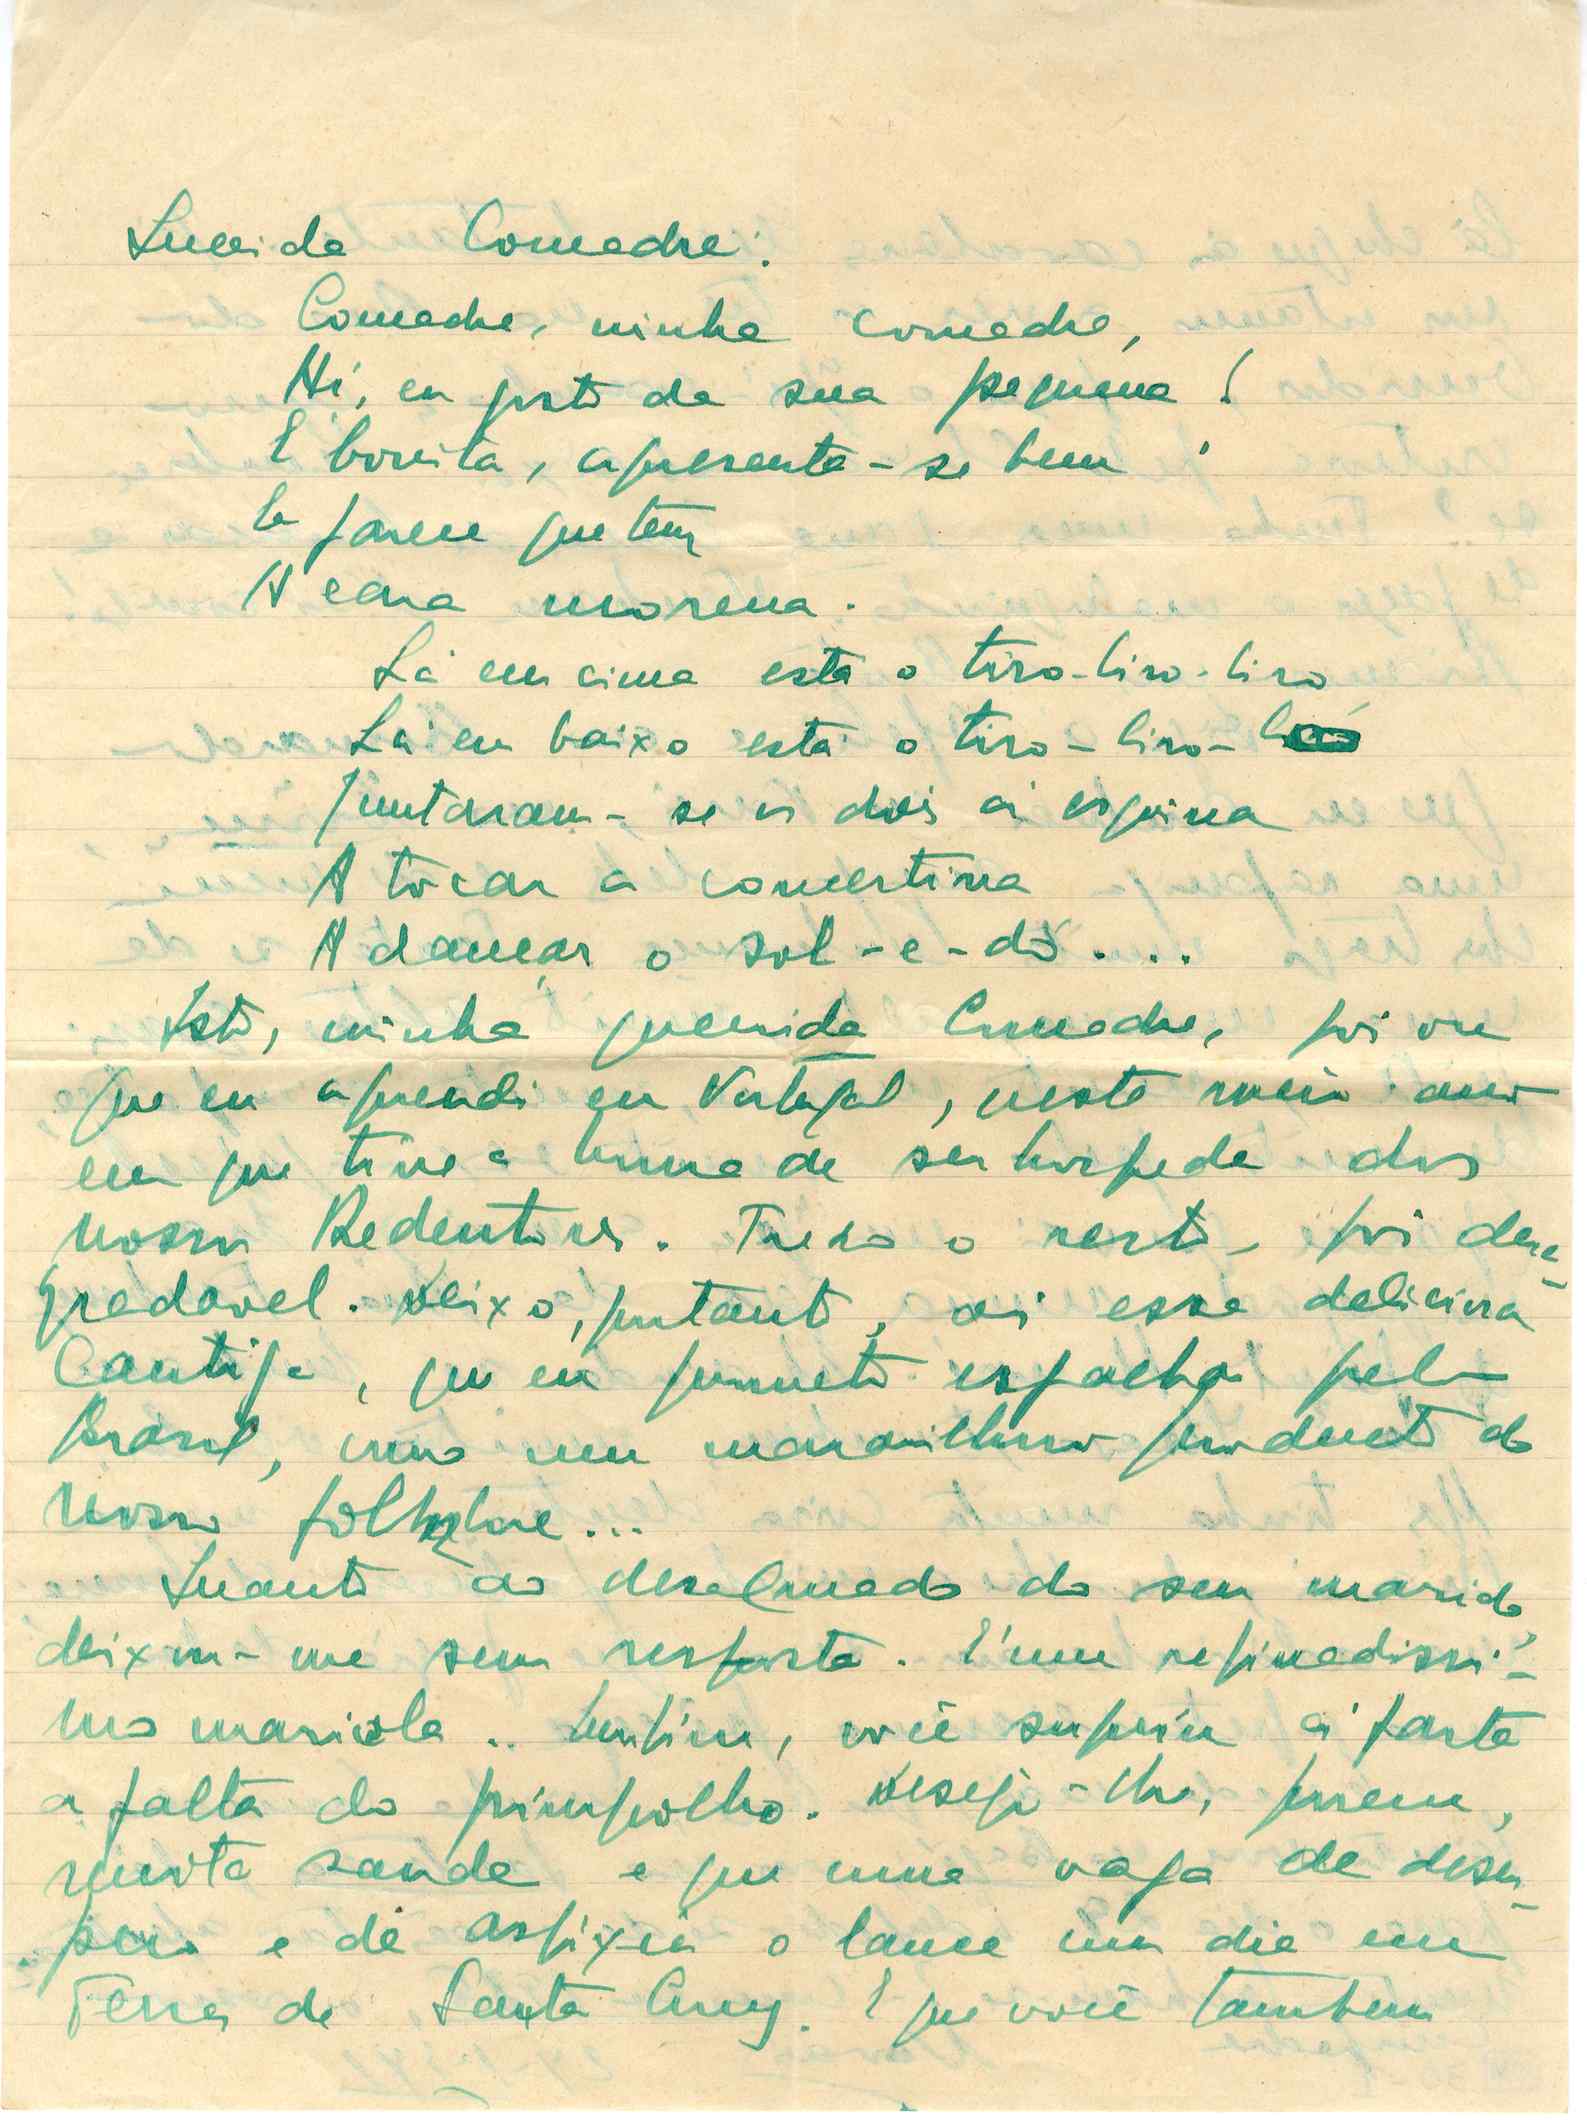 Querida Comadre:
Comadre, minha comadre,
Ai, eu gosto da sua pequena!
É bonita, apresenta-se bem
E parece que tem
A cara morena.
Lá em cima está o tiro-liro-liro
Lá em baixo está o tiro-liro-ló
Juntaram-se os dois à esquina
A tocar a concertina
A dançar o sol-e-dó...
Isto, minha querida Comadre, foi o
que eu aprendi em Portugal, neste meio ano
em que tive a honra de ser hóspede dos
nossos Redentores. Tudo o resto foi desa-
gradavel. Deixo, portanto, aí essa deliciosa
Cantiga, que eu prometo espalhar pelo
Brasil, como um maravilhoso producto do
nosso folklore...
Quanto ao desalmado do seu marido,
deixou-me sem resposta. É um refinadissi-
mo mariola.. Enfim, você supriu à farta
a falta do pimpolho. Desejo-lhe, porem,
muita saude e que uma vaga de deses-
pero e de asfixia o lance um dia em
Terras de Santa Cruz. E que você tambem